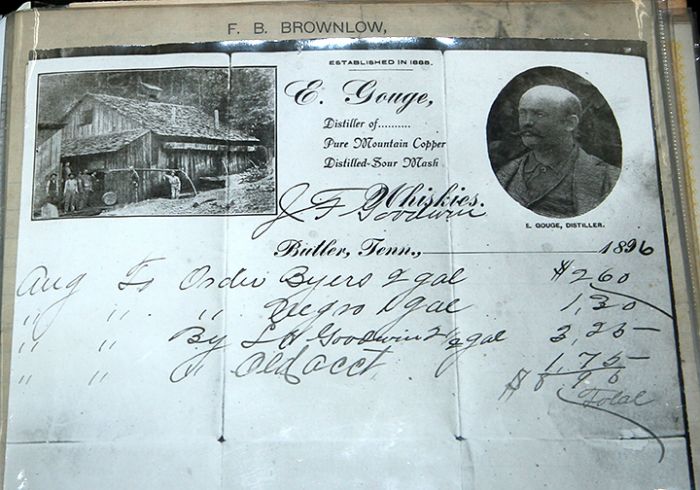 F. B. BROWNLOW,
ESTABLISHED IN 1888.
E. Gouge,
Distiller of..........
Pure Mountain Copper
Distilled-Sour Mash
Whiskies.
J F Goodwin
E. GOUGE, DISTILLER.
Butler, Tenn., 1896
Aug To Order Byers 2 gal $2.60
" " " Negro 1 gal 1,30
" " By L H Goodwin 2 1/2 gal 3,25
" " " Old acct 1,75
$8 90
Total